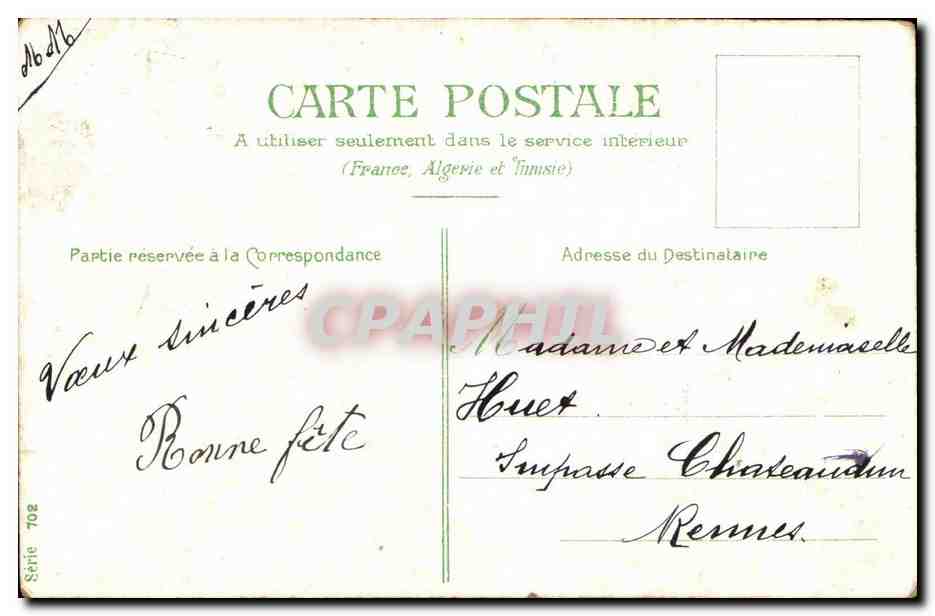 MM
CARTE POSTALE
A utiliser seulement dans le service intérieur
(France, Algérie et Tunisie)
Partie réservée à la Correspondance
Vœux sincères
Bonne fête
Adresse du Destinataire
Madame et Mademoiselle
Huet.
Impasse Chateaudun
Rennes.
Série 702
CPAPHIL